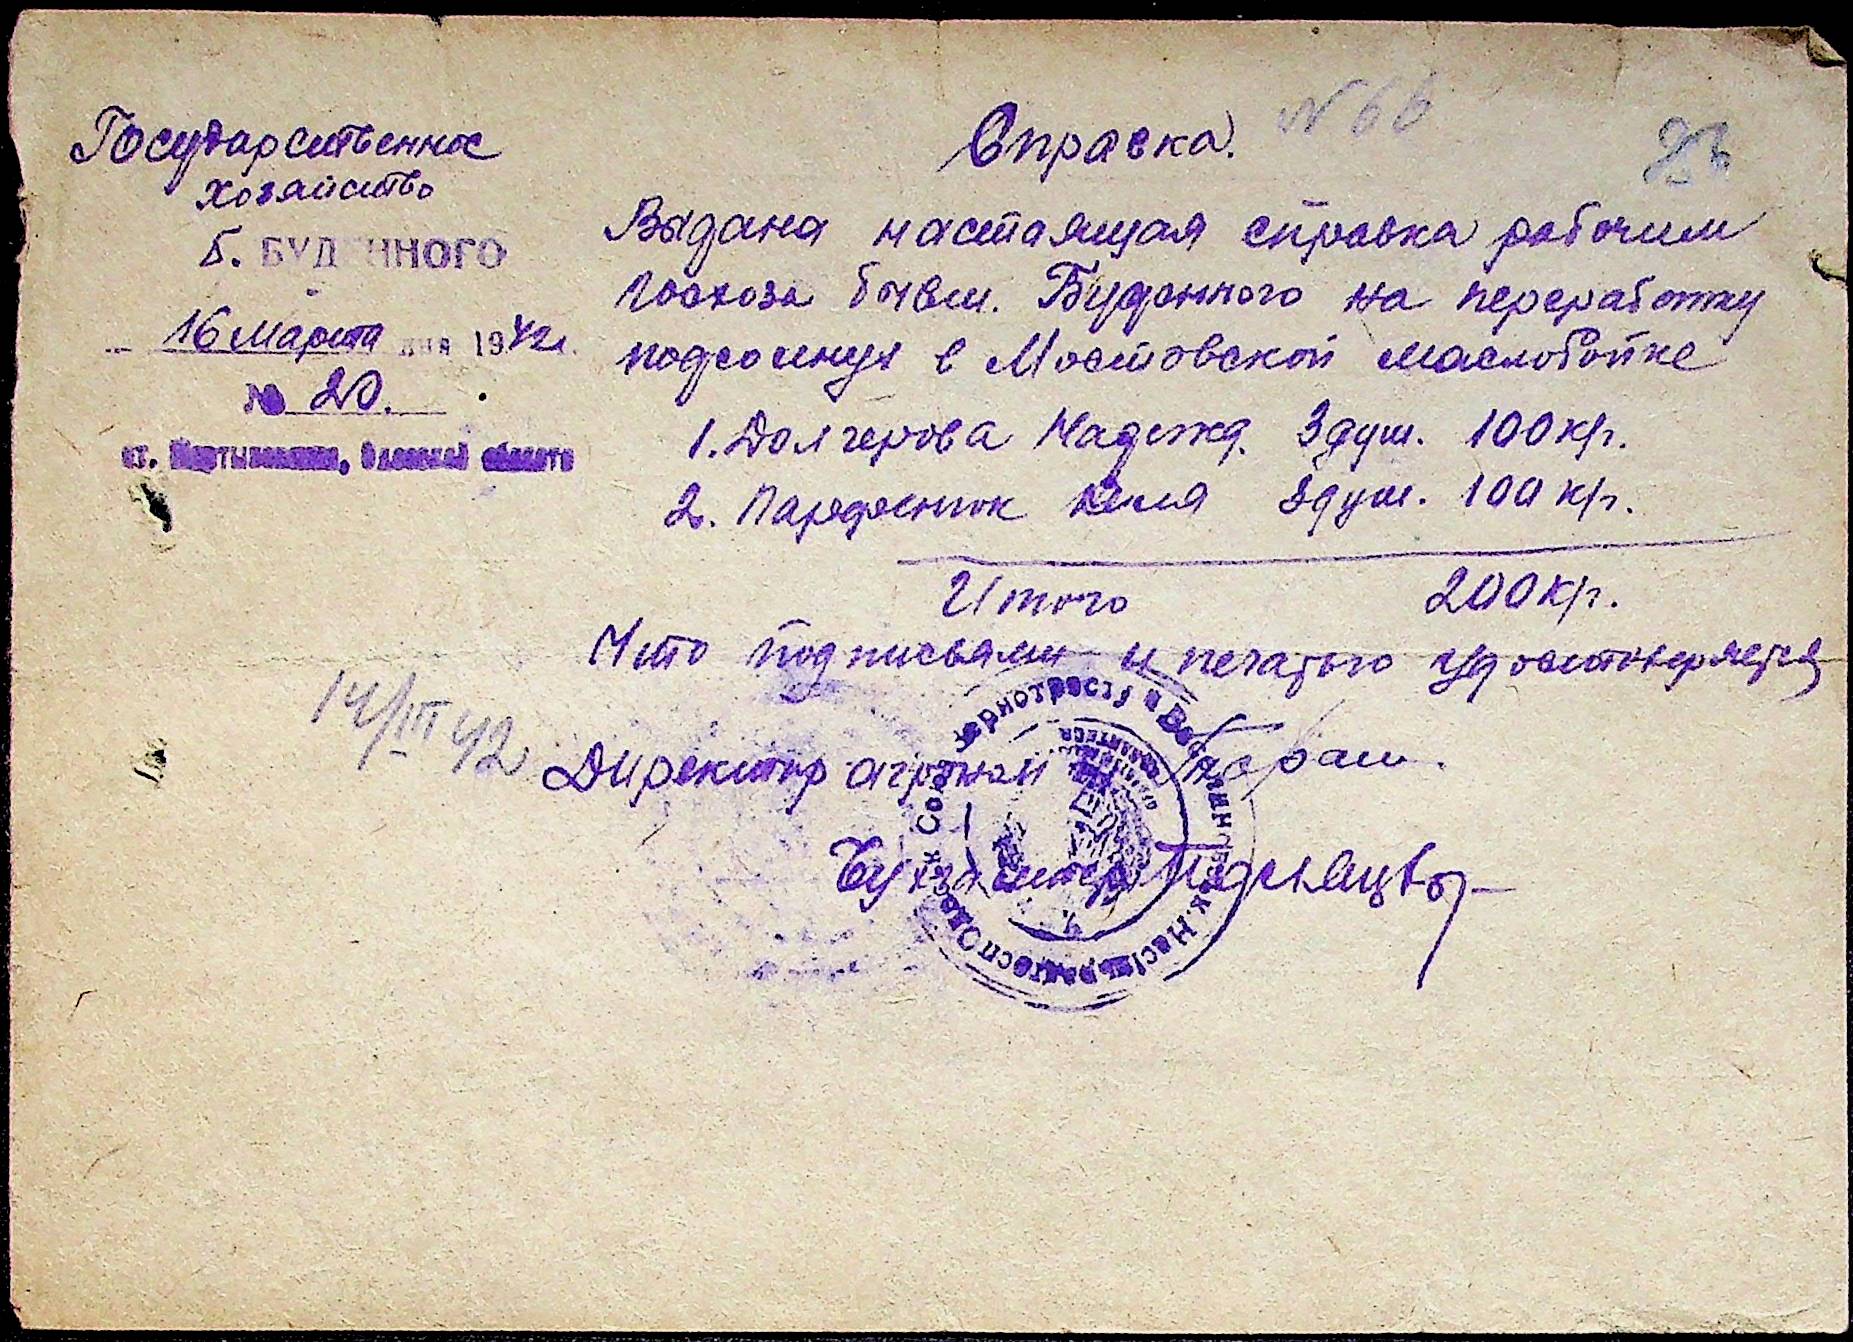 Государственное
хозяйство
б. БУДЕННОГО
16 Марта дня 1942 г.
№ 20.
ст. Мартыновская, Одесской области
Справка. № 66
Выдана настаящая справка рабочим
Госхоза бывш. Буденного на переработку
подсолнух в Мостовской маслобойке
1. Долгерова Надежд. 3 душ. 100 кгр.
2. 3 душ. 100 кгр.
Итого 200 кгр.
Что подписьями и печатью удостоверяется
14/III 42
Директор агроном
Бухгалтер